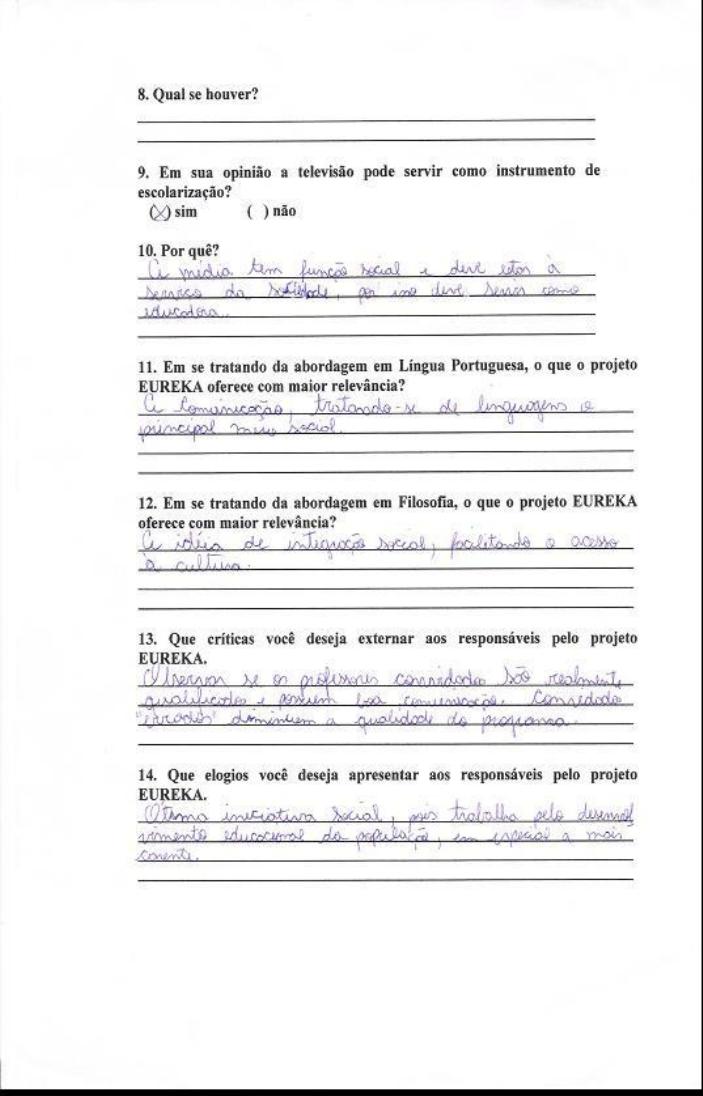 8. Qual se houver?
9. Em sua opinião a televisão pode servir como instrumento de
escolarização?
(X) sim ( ) não
10. Por quê?
A mídia tem função social e deve estar à
serviço da sociedade, por isso deve servir como
educadora.
11. Em se tratando da abordagem em Língua Portuguesa, o que o projeto
EUREKA oferece com maior relevância?
A Comunicação, tratando-se de linguagens é
principal meio social.
12. Em se tratando da abordagem em Filosofia, o que o projeto EUREKA
oferece com maior relevância?
A idéia de integração social, facilitando o acesso
à cultura.
13. Que críticas você deseja externar aos responsáveis pelo projeto
EUREKA.
Observar se os professores convidados são realmente
qualificados e possuem boa comunicação. Convidados
"errados" diminuem a qualidade do programa.
14. Que elogios você deseja apresentar aos responsáveis pelo projeto
EUREKA.
Ótima iniciativa social, pois trabalha pelo desenvol
vimento educacional da população, em especial a mais
carente.